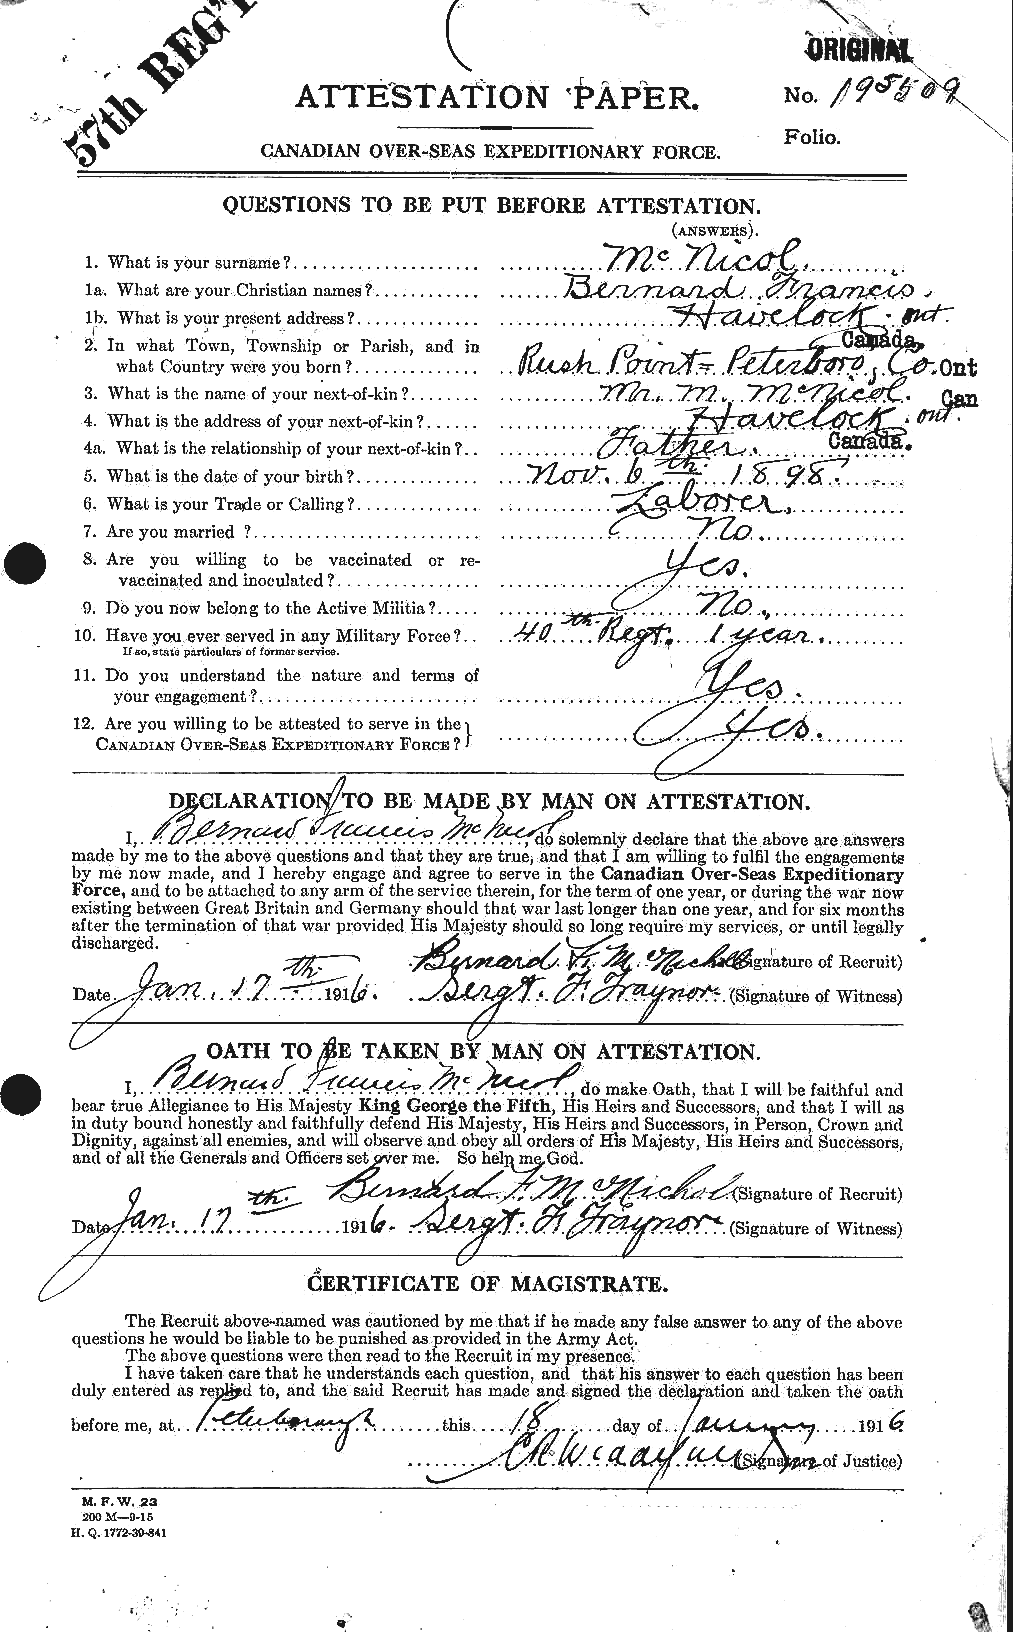 57th REG'T
ORIGINAL
ATTESTATION PAPER.
No. 195509
Folio.
CANADIAN OVER-SEAS EXPEDITIONARY FORCE.
QUESTIONS TO BE PUT BEFORE ATTESTATION.
(ANSWERS).
1. What is your surname? Mc Nicol.
1a. What are your Christian names? Bernard Francis.
1b. What is your present address? Havelock. ont.
Canada,
2. In what Town, Township or Parish, and in
what Country were you born? Rush Point = Peterboro, Co. Ont
3. What is the name of your next-of-kin? Mr. M. McNicol. Can
4. What is the address of your next-of-kin? Havelock. ont.
4a. What is the relationship of your next-of-kin? Father. Canada.
5. What is the date of your birth? Nov. 6th. 1898.
6. What is your Trade or Calling? Laborer.
7. Are you married ? No.
8. Are you willing to be vaccinated or re-
vaccinated and inoculated? Yes.
9. Do you now belong to the Active Militia? No.
10. Have you ever served in any Military Force? 40th Regt. 1 year.
If so, state particulars of former service.
11. Do you understand the nature and terms of
your engagement? Yes.
12. Are you willing to be attested to serve in the
CANADIAN OVER-SEAS EXPEDITIONARY FORCE? Yes.
DECLARATION TO BE MADE BY MAN ON ATTESTATION.
I, Bernard Francis McNicol, do solemnly declare that the above are answers
made by me to the above questions and that they are true, and that I am willing to fulfil the engagements
by me now made, and I hereby engage and agree to serve in the Canadian Over-Seas Expeditionary
Force, and to be attached to any arm of the service therein, for the term of one year, or during the war now
existing between Great Britain and Germany should that war last longer than one year, and for six months
after the termination of that war provided His Majesty should so long require my services, or until legally
discharged.
Bernard F. McNichol (Signature of Recruit)
Date Jan. 17th 1916. Sergt. F. Traynor (Signature of Witness)
OATH TO BE TAKEN BY MAN ON ATTESTATION.
I, Bernard Francis McNicol, do make Oath, that I will be faithful and
bear true Allegiance to His Majesty King George the Fifth, His Heirs and Successors, and that I will as
in duty bound honestly and faithfully defend His Majesty, His Heirs and Successors, in Person, Crown and
Dignity, against all enemies, and will observe and obey all orders of His Majesty, His Heirs and Successors,
and of all the Generals and Officers set over me. So help me God.
Bernard F. McNichol (Signature of Recruit)
Date Jan. 17th. 1916. Sergt. F. Traynor (Signature of Witness)
CERTIFICATE OF MAGISTRATE.
The Recruit above-named was cautioned by me that if he made any false answer to any of the above
questions he would be liable to be punished as provided in the Army Act.
The above questions were then read to the Recruit in my presence.
I have taken care that he understands each question, and that his answer to each question has been
duly entered as replied to, and the said Recruit has made and signed the declaration and taken the oath
before me, at Peterborough this 18 day of January 1916
(Signature of Justice)
M. F. W. 23
200 M—9-15
H. Q. 1772-39-841